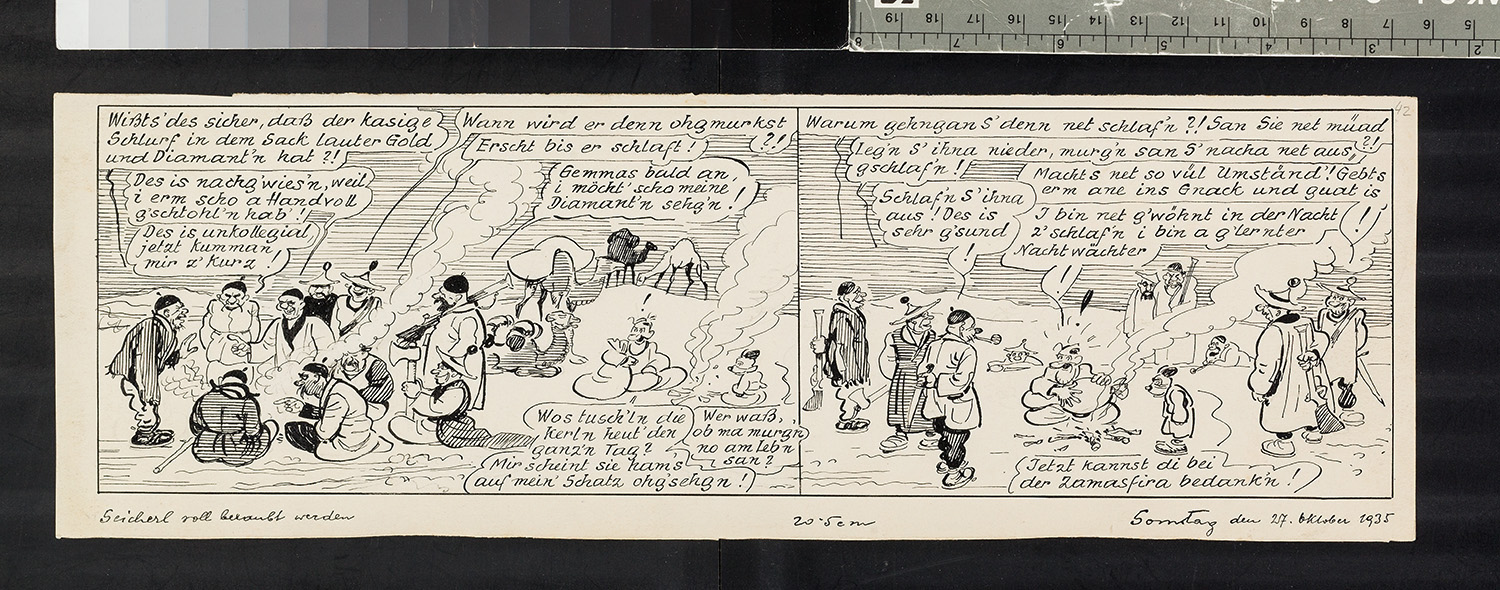 Wißts' des sicher, daß der kasige
Schlurf in dem Sack lauter Gold
und Diamant'n hat?!
Des is nachg'wies'n, weil
i erm scho a Handvoll
g'schtohl'n hab'!
Des is unkollegial,
jetzt kumman
mir z' kurz!
Wann wird er denn ohgmurkst
?!
Erscht bis er schlaft!
Gemmas bald an,
i möcht' scho meine
Diamant'n sehg'n!
!
Wos tusch'ln die
Kerl'n heut' den
ganz'n Tag?
Mir scheint sie ham's
auf mein' Schatz ohg'sehgn!
Wer waß,
ob ma murg'n
no am Leb'n
san?
Warum gehngan S' denn net schlaf'n?! San Sie net müad
?!
Leg'n S' ihna nieder, murg'n san S' nacha net aus
gschlaf'n!
Machts net so vül Umständ'! Gebts
erm ane ins Gnack und guat is
!
Schlaf'n S' ihna
aus! Des is
sehr g'sund
!
I bin net g'wöhnt in der Nacht
z' schlaf'n i bin a g'lernter
Nachtwächter
!
Jetzt kannst di bei
der Zamasfira bedank'n!
Seicherl soll beraubt werden
20·5 cm
Sonntag den 27. Oktober 1935
42
19 18 17 16 15 14 13 12 11 10 9 8 7 6 5
8 7 6 5 4 3 2